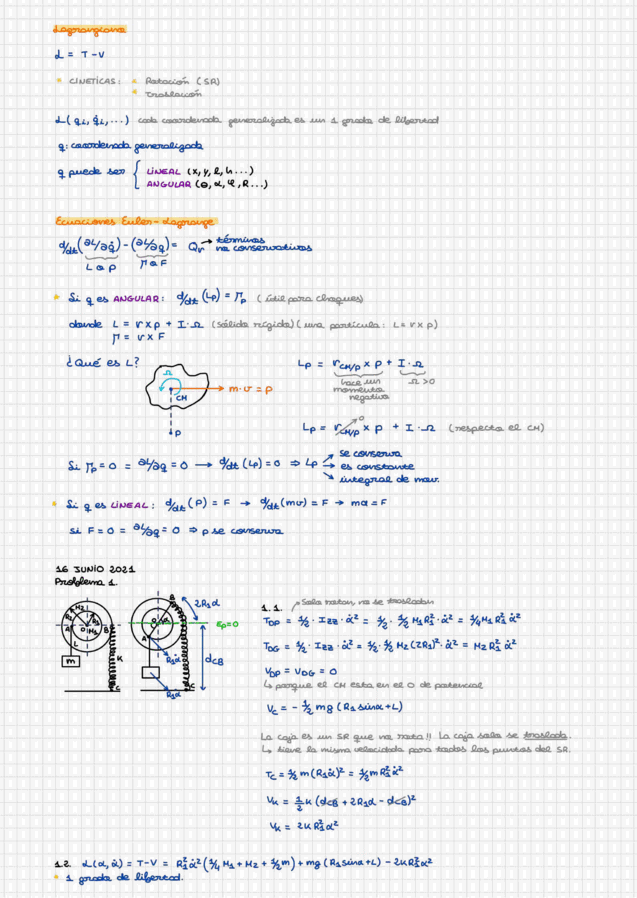 Lagrangiana
L = T - V
* CINETICAS: * Rotación (SR)
* Traslación
L(qi, q̇i, ...) cada coordenada generalizada es un 1 grado de libertad
q: coordenada generalizada
q puede ser { LINEAL (x, y, l, h...)
ANGULAR (θ, α, φ, R...)
Ecuaciones Euler-Lagrange
d/dt(∂L/∂q̇) - (∂L/∂q) = Qr → términos
no conservativos
L o p    Γ o F
* Si q es ANGULAR: d/dt (Lp) = Γp (útil para choques)
donde L = r x p + I·Ω (sólido rígido) (una partícula: L = r x p)
Γ = r x F
¿Qué es L?
Ω
CM
m·v = p
P
Lp = r CM/P x p + I·Ω
hace un
momento
negativo
Ω > 0
Lp = r CM/P x p + I·Ω (respecto el CM)
0
Si Γp = 0 = ∂L/∂q = 0 → d/dt (Lp) = 0 ⇒ Lp → se conserva
→ es constante
→ integral de mov.
* Si q es LINEAL: d/dt (p) = F → d/dt (mv) = F → ma = F
si F = 0 = ∂L/∂q = 0 ⇒ p se conserva
16 JUNIO 2021
Problema 1.
M2
R2
R1
A
O
M1
B
L
K
m
C
B
O
A
2R1α
Ep=0
dCB
R1α
R1α
C
1.1. Solo rotan, no se trasladan
TDP = 1/2 · Izz · α̇² = 1/2 · 1/2 M1 R1² · α̇² = 1/4 M1 R1² α̇²
TDG = 1/2 · Izz · α̇² = 1/2 · 1/2 M2 (2R1)² · α̇² = M2 R1² α̇²
VDP = VDG = 0
↳ porque el CM esta en el 0 de potencial
Vc = - 1/2 mg (R1 sinα + L)
La caja es un SR que no rota!! La caja solo se traslada.
↳ tiene la misma velocidad para todos los puntos del SR.
Tc = 1/2 m (R1 α̇)² = 1/2 m R1² α̇²
Vk = 1/2 K (dCB + 2R1α - dCB)²
Vk = 2K R1² α²
1.2. L(α, α̇) = T - V = R1² α̇² (1/4 M1 + M2 + 1/2 m) + mg (R1 sinα + L) - 2K R1² α²
* 1 grado de libertad.